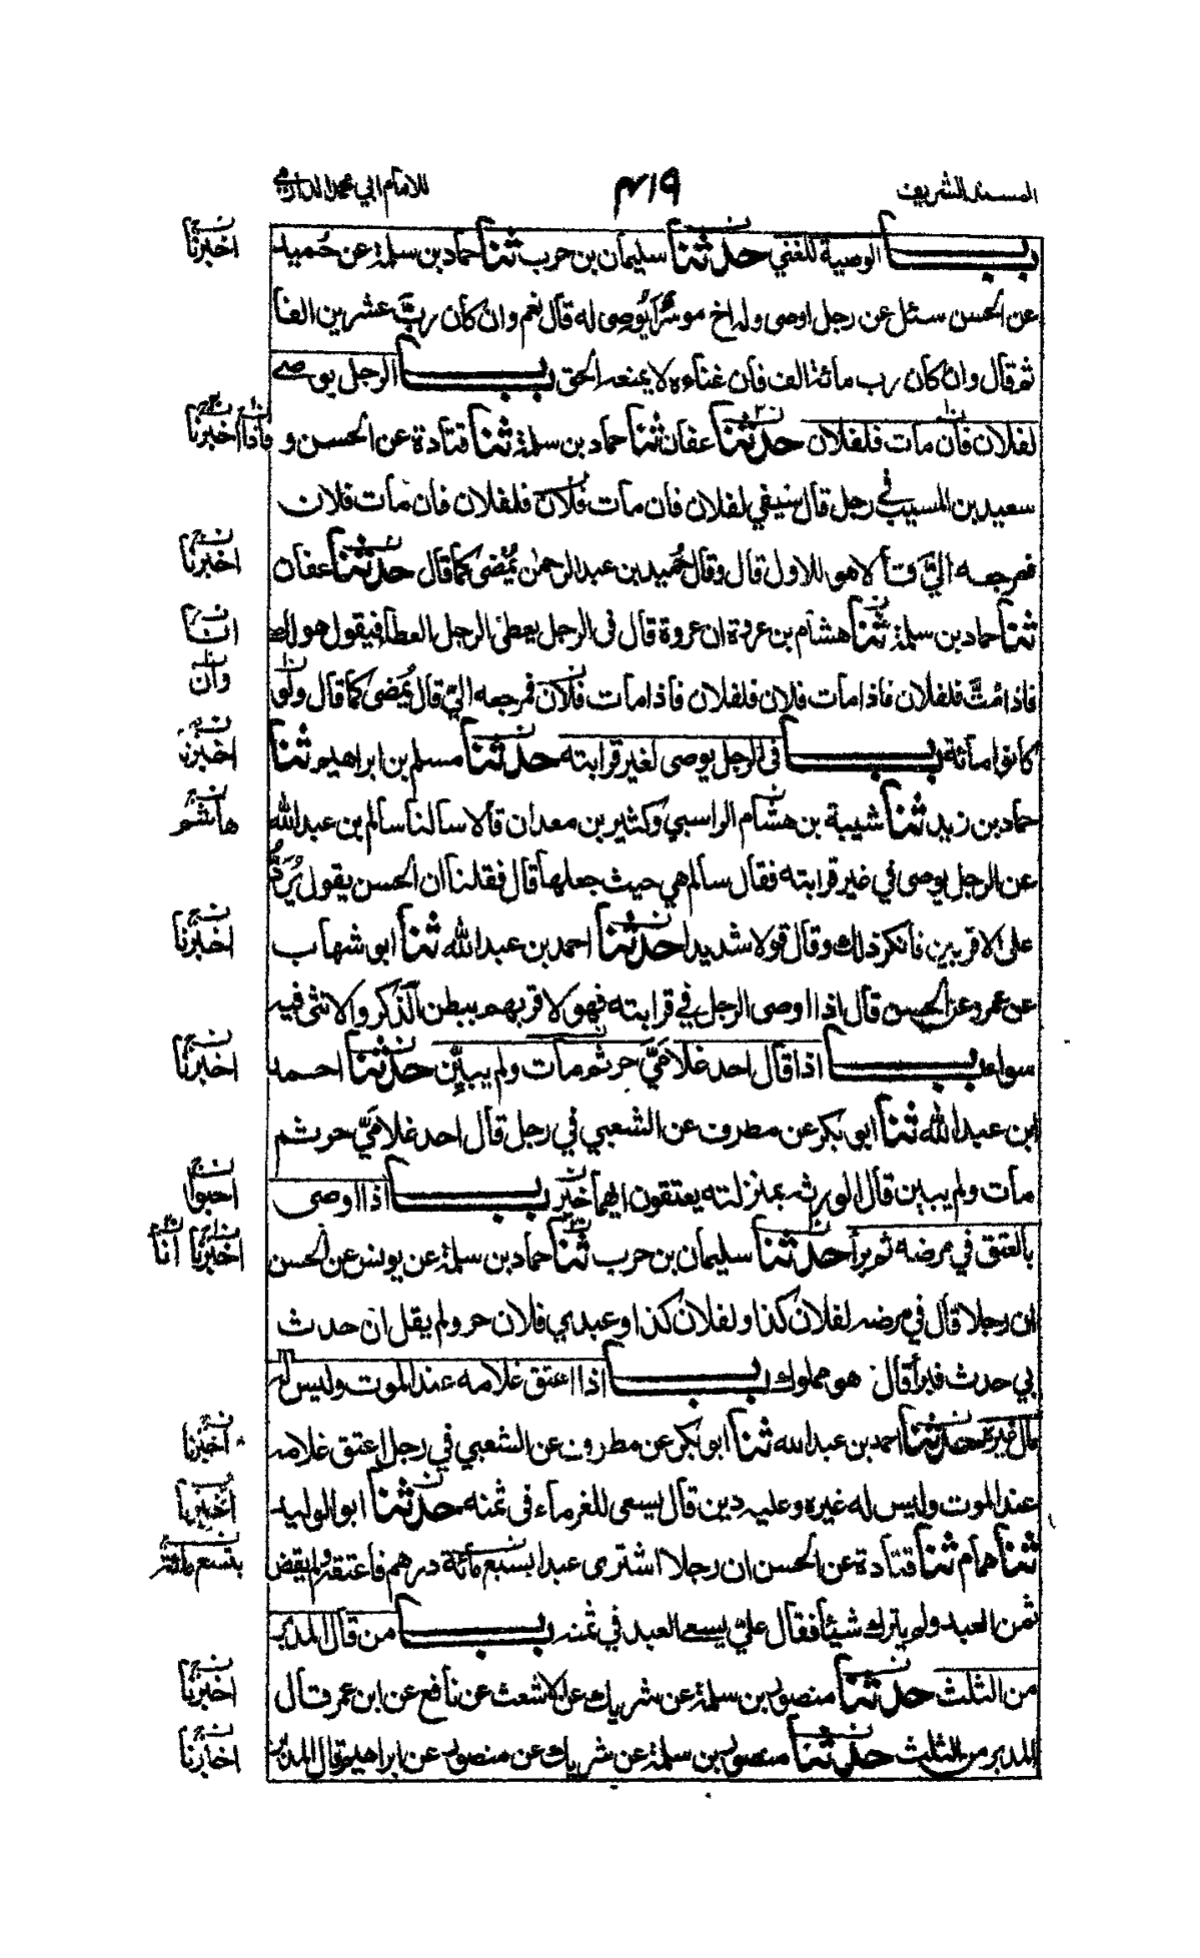 المسند الشريف ٤١٩ للامام ابي محمد الدارمي
باب الوصية للغني حدثنا سليمان بن حرب ثنا حماد بن سلمة عن حُميد
اخبرنا
عن الحسن سئل عن رجل اوصى وله اخ موسرٌ أيُوصِى له قال نعم وان كان ربَّ عشرين الفا
ثم قال وان كان رب مائة الف فان غناءه لا يمنعه الحق باب الرجل يوصى
لفلان فان مات فلفلان حدثنا عفان ثنا حماد بن سلمة ثنا قتادة عن الحسن و
فاذا اخبرنا
سعيد بن المسيب في رجل قال سيفي لفلان فان مات فلان فلفلان فان مات فلان
فمرجعه اليَّ قالا هو للاول قال وقال حُميد بن عبد الرحمٰن يُمْضى كما قال حدثنا عفان
اخبرنا
ثنا حماد بن سلمة ثنا هشام بن عروة ان عروة قال فى الرجل يعطى الرجل العطاء فيقول هو لك
انا
فاذا متَّ فلفلان فاذا مات فلان فلفلان فاذا مات فلان فمرجعه اليّ قال يُمضى كما قال ولو
وان
كانوا مائة باب فى الرجل يوصى لغير قرابته حدثنا مسلم بن ابراهيم ثنا
اخبرنا
حماد بن زيد ثنا شيبة بن هشام الراسبي وكثير بن معدان قالا سالنا سالم بن عبد الله
هاشم
عن الرجل يوصى في غير قرابته فقال سالم هي حيث جعلها قال فقلنا ان الحسن يقول يُرَدُّ
على الاقربين فانكر ذلك وقال قولا شديدا حدثنا احمد بن عبد الله ثنا ابو شهاب
اخبرنا
عن عمرو عن الحسن قال اذا اوصى الرجل في قرابته فهو لاقربهم ببطن الذكر والانثى فيه
سواء باب اذا قال احد غلامَيَّ حر ثم مات ولم يبيّن حدثنا احمد
اخبرنا
ابن عبد الله ثنا ابو بكر عن مطرف عن الشعبي في رجل قال احد غلامَيَّ حر ثم
مات ولم يبين قال الورثة بمنزلته يعتقون ايهما خُيّر باب اذا اوصى
احبوا
بالعتق في مرضه ثم برأ حدثنا سليمان بن حرب ثنا حماد بن سلمة عن يونس عن الحسن
اخبرنا انا
ان رجلا قال في مرضه لفلان كذا ولفلان كذا وعبدي فلان حر ولم يقل ان حدث
بي حدث فبرأ قال هو مملوك باب اذا اعتق غلامه عند الموت وليس له
مال غيره حدثنا احمد بن عبد الله ثنا ابو بكر عن مطرف عن الشعبي في رجل اعتق غلامه
اخبرنا
عند الموت وليس له غيره وعليه دين قال يسعى للغرماء فى ثمنه حدثنا ابو الوليد
اخبرنا
ثنا همام ثنا قتادة عن الحسن ان رجلا اشترى عبدا بسبع مائة درهم فاعتقه ولم يقض
بتسع مائة
ثمن العبد ولم يترك شيئا فقال عليّ يسعى العبد في ثمنه باب من قال المدبر
من الثلث حدثنا منصور بن سلمة عن شريك عن الاشعث عن نافع عن ابن عمر قال
اخبرنا
المدبر من الثلث حدثنا منصور بن سلمة عن شريك عن منصور عن ابراهيم قال المدبر
اخبرنا